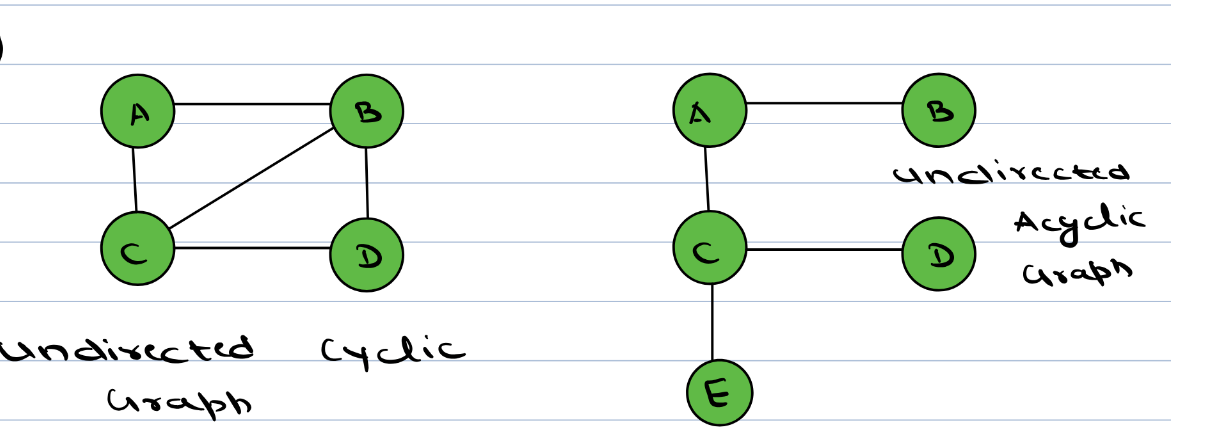 )
A B
C D
Undirected Cyclic
Graph
A B
undirected
Acyclic
C D
Graph
E